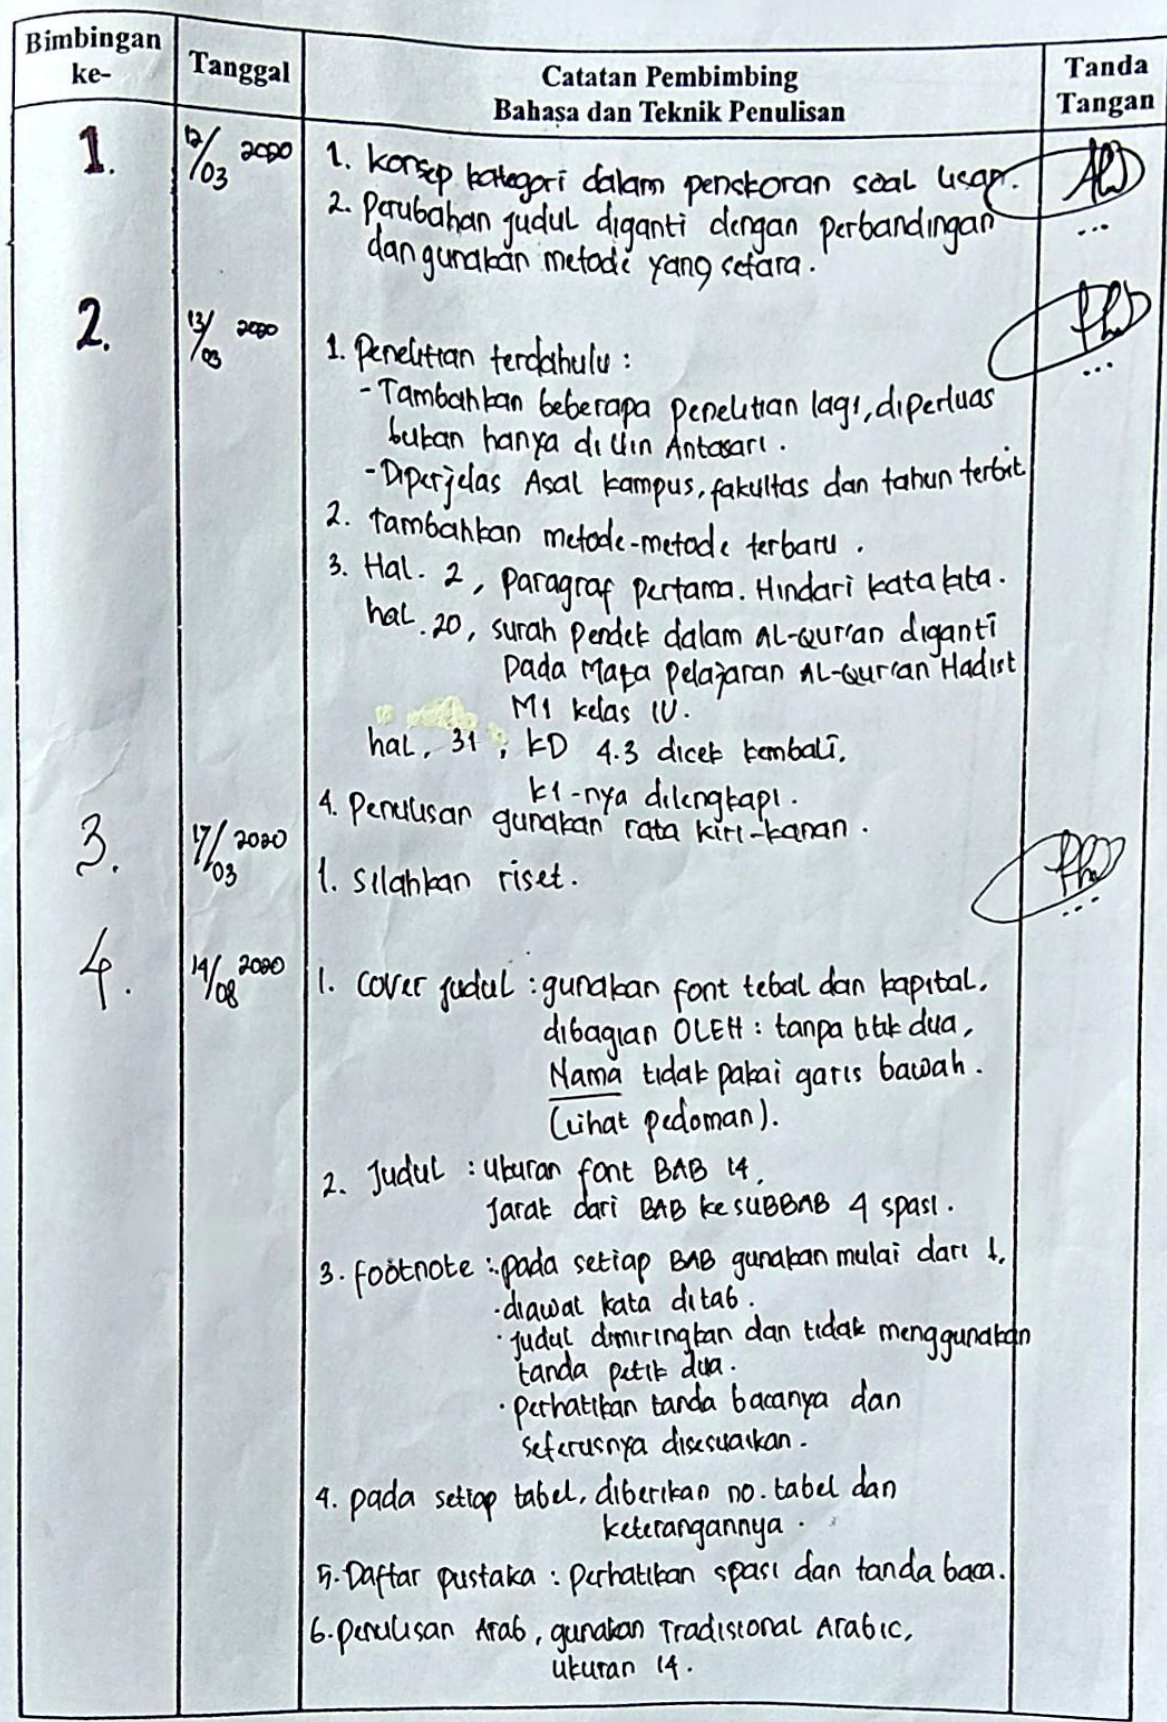 Bimbingan ke-
Tanggal
Catatan Pembimbing
Bahasa dan Teknik Penulisan
Tanda Tangan
1.
12/03 2020
1. Konsep kategori dalam penskoran soal
2. Perubahan judul diganti dengan perbandingan
dan gunakan metode yang setara.
...
2.
13/03 2020
1. Penelitian terdahulu :
- Tambahkan beberapa penelitian lagi, diperluas
bukan hanya di Uin Antasari.
- Diperjelas Asal kampus, fakultas dan tahun terbit
2. tambahkan metode-metode terbaru.
3. Hal. 2, Paragraf pertama. Hindari kata kita.
hal. 20, surah pendek dalam AL-Qur'an diganti
pada Mata pelajaran AL-Qur'an Hadist
MI kelas IV.
hal. 31 ; KD 4.3 dicek kembali.
KI-nya dilengkapi.
4. Penulisan gunakan rata kiri-kanan.
...
3.
17/03 2020
1. Silahkan riset.
...
4.
14/08 2020
1. Cover judul : gunakan font tebal dan kapital,
dibagian OLEH : tanpa titik dua,
Nama tidak pakai garis bawah.
(Lihat pedoman).
2. Judul : ukuran font BAB 14,
Jarak dari BAB ke SUBBAB 4 spasi.
3. footnote : · pada setiap BAB gunakan mulai dari 1.
· diawal kata ditab.
· judul dimiringkan dan tidak menggunakan
tanda petik dua.
· perhatikan tanda bacanya dan
seterusnya disesuaikan.
4. pada setiap tabel, diberikan no. tabel dan
keterangannya.
5. Daftar pustaka : perhatikan spasi dan tanda baca.
6. penulisan Arab, gunakan Tradisional Arabic,
ukuran 14.